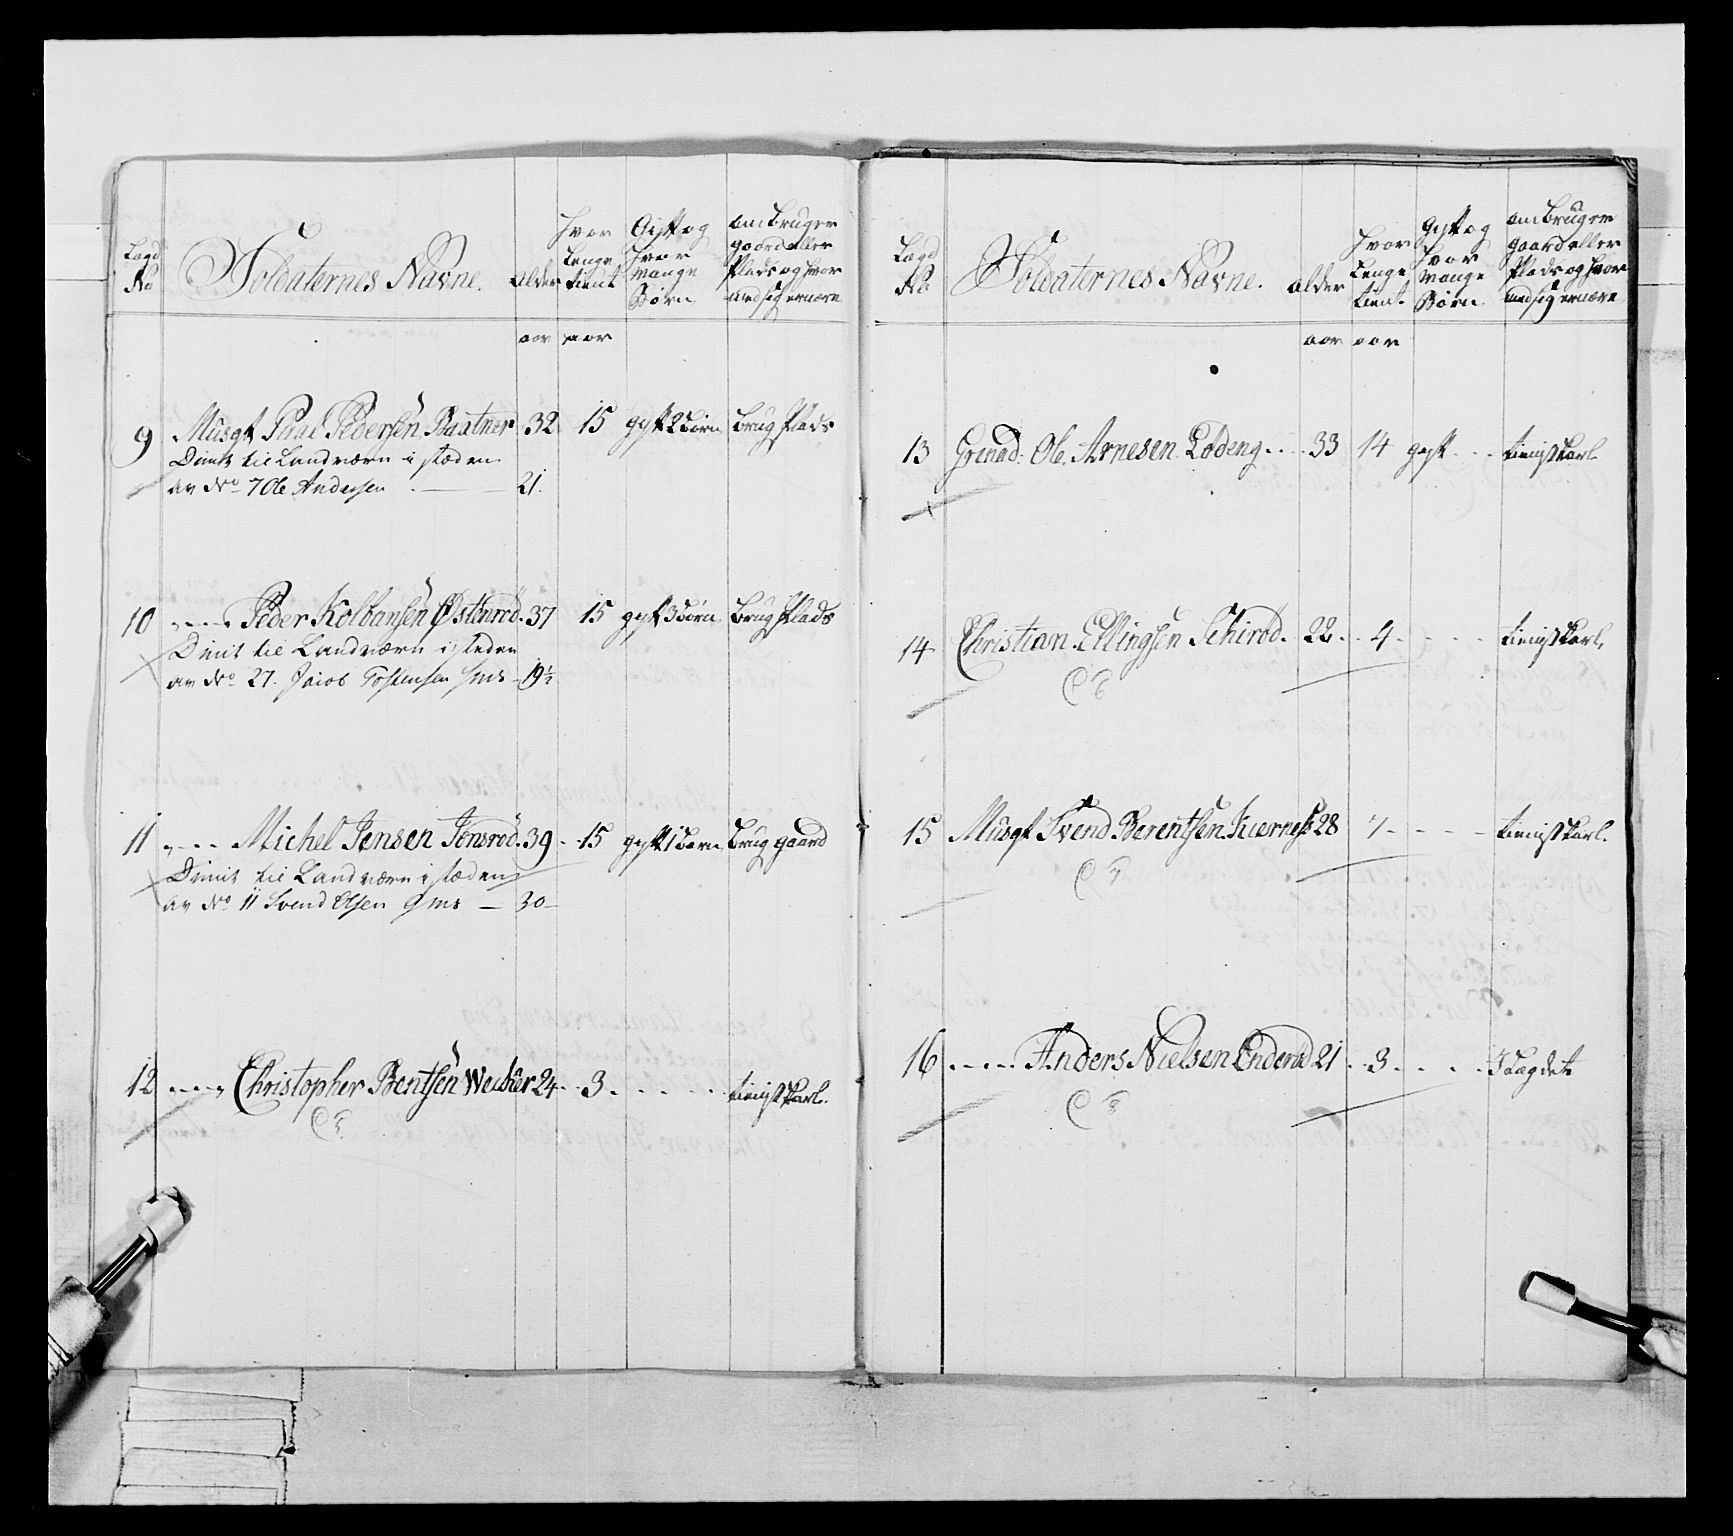 Lægd
No
Soldaternes Navne.
alder
hvor
Lenge
tient
Gift og
hvor
mange
Børn
om bruger
gaard eller
Plads og hvor
med sig ernære
aar aar
9 Musqt Paal Pedersen Baatner 32 15 gift 2 Børn brug Plads
Dimit til Landværn i stæden
av No 7 Ole Andersen 21.
10 Peder Kolbansen Østenrød. 37 15 gift 3 børn brug Plads
Dimit til Landværn i steden
av No 27. Jacob Tostensen 19½
11 Michel Jensen Jonsrød. 39 15 gift 1 barn brug gaard
Dimit til Landværn i stæden
av No 11 Svend Olsen 30
12 Christopher Bentsen 24 3 tienistkarl.
Lægd
No
Soldaternes Navne.
alder
hvor
Lenge
tient.
gift og
hvor
mange
Børn
om bruger
gaard eller
Plads og hvor
med sig ernære
aar aar
13 Grenad. Ole Arnesen Lodeng 33 14 gift tienistkarl
14 Christian Ellingsen Schirød. 22 4 tienistkarl.
15 Musqt Svend Berentsen 28 7 tienistkarl.
16 Anders Nielsen Enderød 21 3 I Lægdet